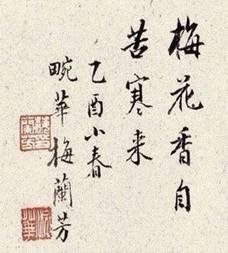 梅花香自
苦寒来
乙酉小春
畹華梅蘭芳